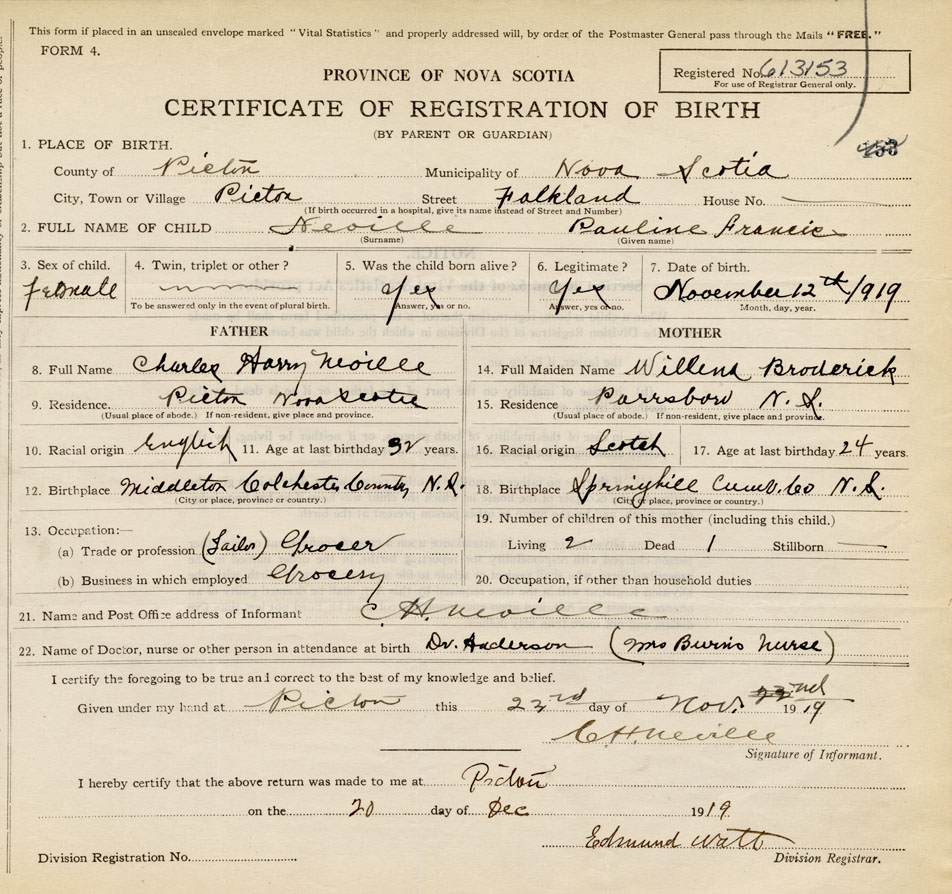 This form if placed in an unsealed envelope marked "Vital Statistics" and properly addressed will, by order of the Postmaster General pass through the Mails "FREE."
FORM 4.
Registered No. 613153
For use of Registrar General only.
PROVINCE OF NOVA SCOTIA
CERTIFICATE OF REGISTRATION OF BIRTH
(BY PARENT OR GUARDIAN)
1. PLACE OF BIRTH.
County of Picton Municipality of Nova Scotia
City, Town or Village Picton Street Falkland House No.
(If birth occurred in a hospital, give its name instead of Street and Number)
2. FULL NAME OF CHILD Neville Pauline Francis
(Surname) (Given name)
3. Sex of child. 4. Twin, triplet or other? 5. Was the child born alive? 6. Legitimate? 7. Date of birth.
female Yes Yes November 12th/1919
To be answered only in the event of plural birth. Answer, yes or no. Answer, yes or no. Month, day, year.
FATHER MOTHER
8. Full Name Charles Harry Neville 14. Full Maiden Name Willena Broderick
9. Residence. Picton Nova Scotia 15. Residence Parrsboro N. S.
(Usual place of abode.) If non-resident, give place and province. (Usual place of abode.) If non-resident, give place and province.
10. Racial origin English 11. Age at last birthday 32 years. 16. Racial origin Scotch 17. Age at last birthday 24 years.
12. Birthplace Middleton Colchester County N.S. 18. Birthplace Springhill Cumb. Co N. S.
(City or place, province or country.) (City or place, province or country.)
13. Occupation:— 19. Number of children of this mother (including this child.)
(a) Trade or profession (Tailor) Grocer Living 2 Dead 1 Stillborn
(b) Business in which employed Grocery 20. Occupation, if other than household duties
21. Name and Post Office address of Informant C. H. Neville
22. Name of Doctor, nurse or other person in attendance at birth Dr. Anderson (Mrs Burns Nurse)
I certify the foregoing to be true and correct to the best of my knowledge and belief.
Given under my hand at Picton this 22nd day of Nov. 22nd 1919
C.H. Neville
Signature of Informant.
I hereby certify that the above return was made to me at Picton
on the 20 day of Dec 1919.
Edmund Watt
Division Registration No. Division Registrar.